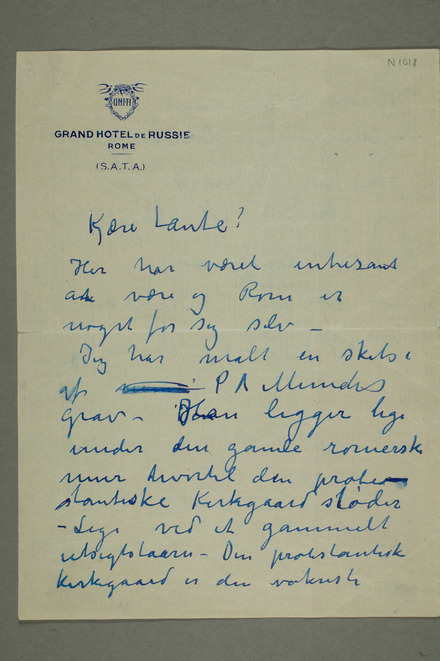 N 1018
UNITI
GRAND HOTEL DE RUSSIE
ROME
(S.A.T.A.)
Kjære Tante!
Her har været interesant
at være og Rom er
noget for sig selv –
Jeg har malt en skitse
af P A Munchs
grav – Han ligger lige
under den gamle romerske
mur hvortil den prote
stantiske Kirkegaard støder
– Lige ved et gammelt
utsigtstaarn – Den protestantiske
Kirkegaard er den vakreste